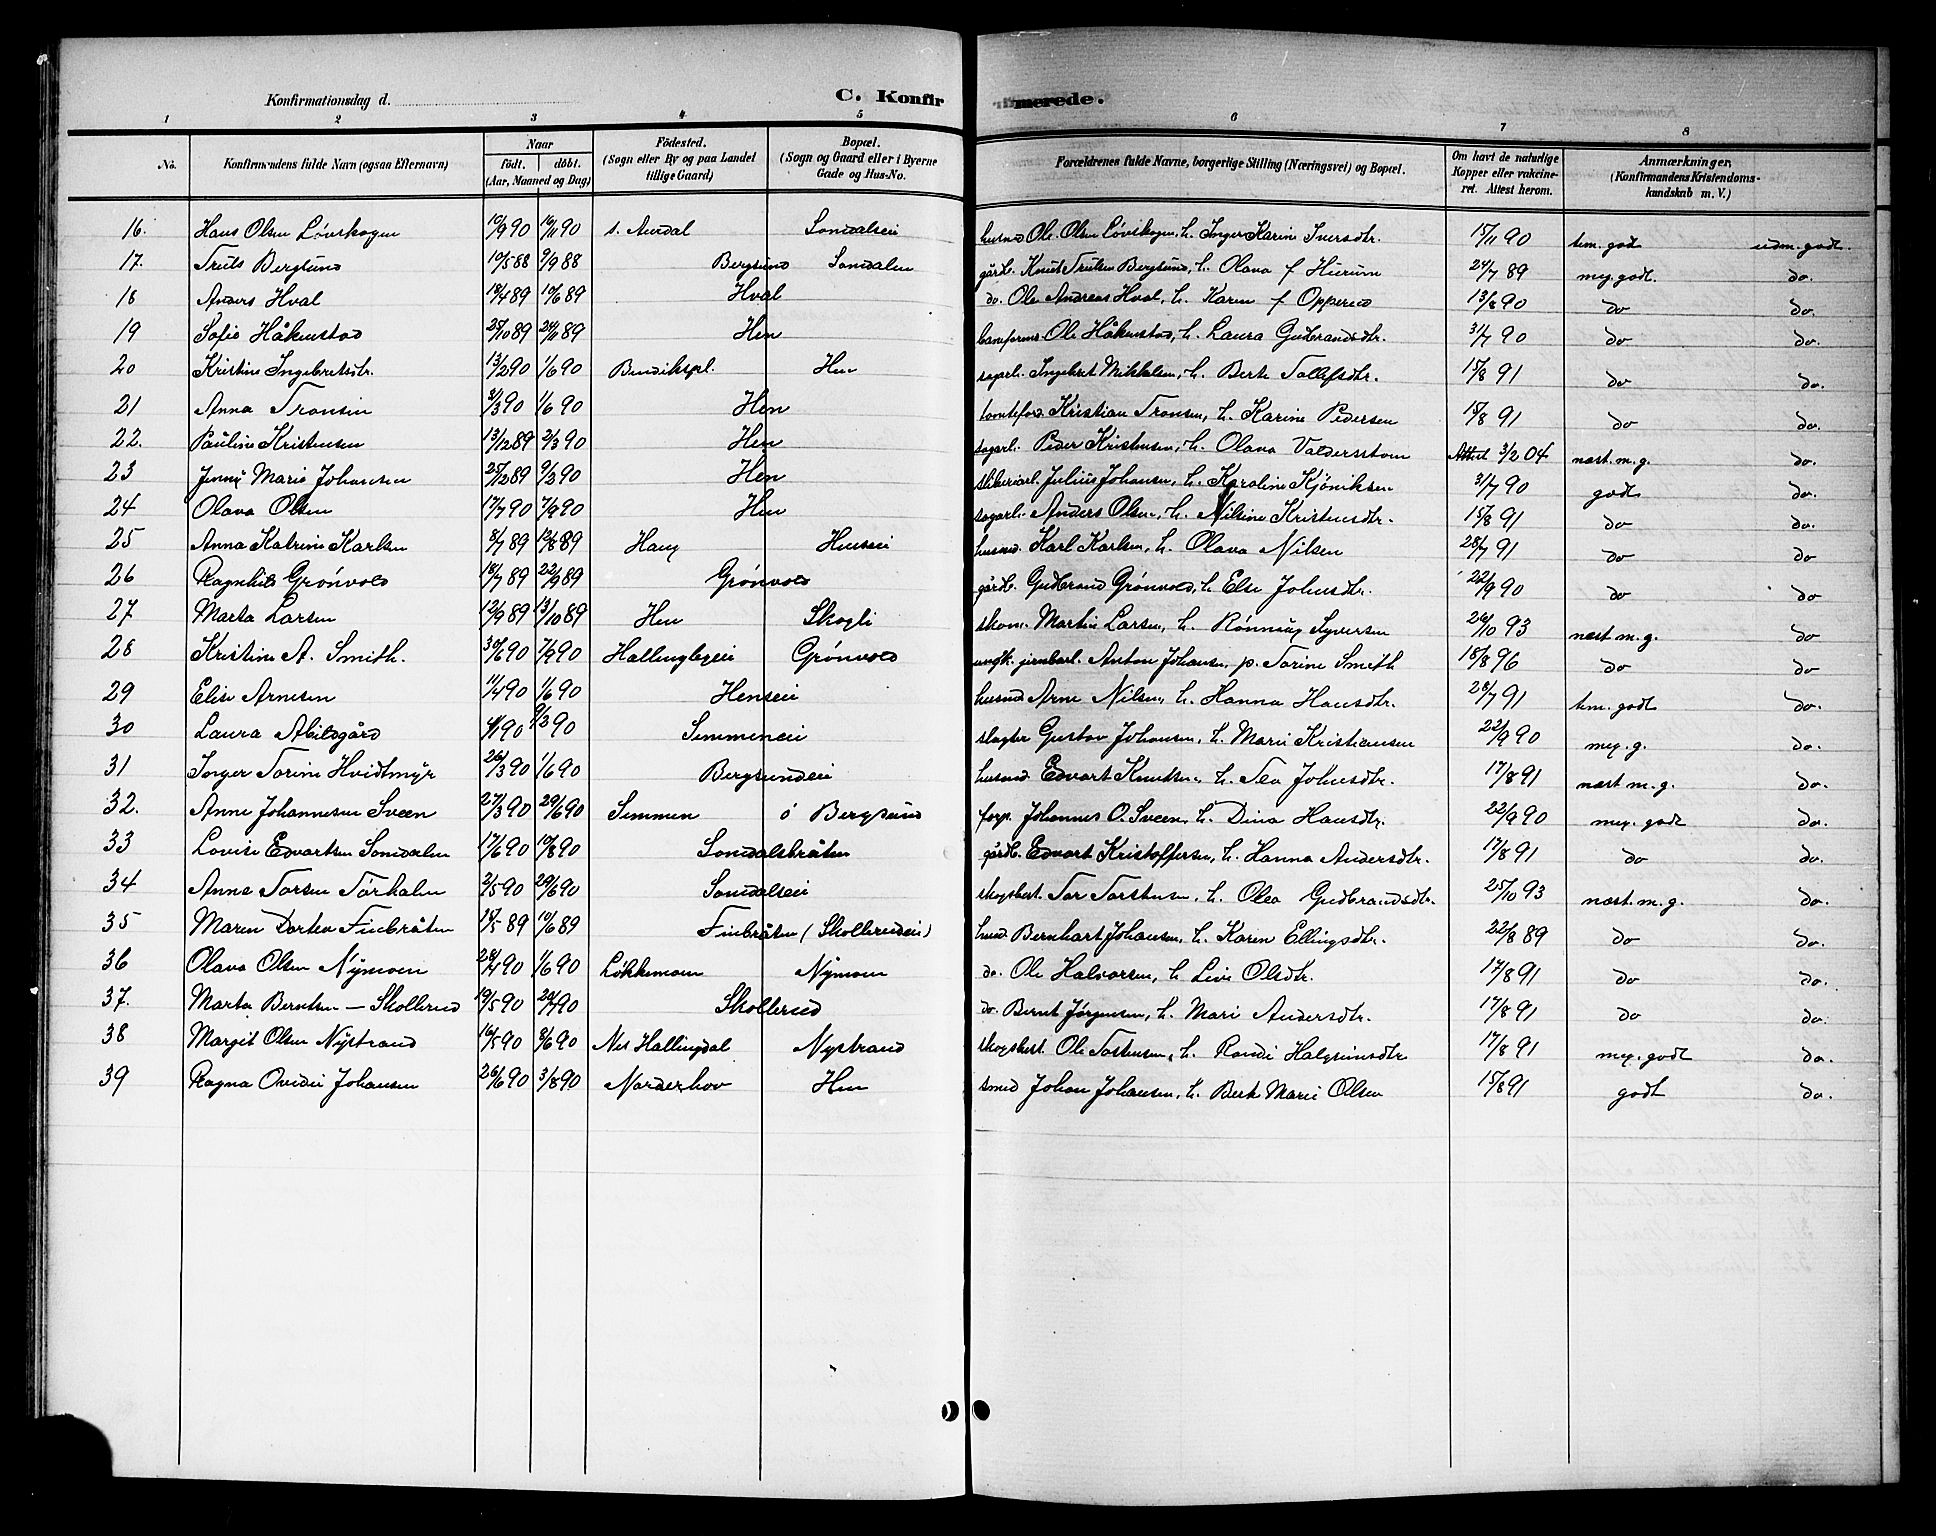 Konfirmationsdag d. C. Konfirmerede.
1 2 3 4 5 6 7 8
No. Konfirmandens fulde Navn (ogsaa Efternavn) Naar födt. döbt. (Aar, Maaned og Dag) Födested. (Sogn eller By og paa Landet tillige Gaard) Bopæl. (Sogn og Gaard eller i Byerne Gade og Hus-No. Forældrenes fulde Navne, borgerlige Stilling (Næringsvei) og Bopæl. Om havt de naturlige Kopper eller vakcineret. Attest herom. Anmærkninger, (Konfirmandens Kristendomskundskab m. V.)
16. Hans Olsen Lövskogen 10/9 90 16/11 90 s. Aurdal Somdalseie husmd Ole Olsen Lövskogen, h. Inger Karine Iversdtr. 15/11 90 tem. godt udm. godt.
17. Truls Bergsund 10/5 88 9/9 88 Bergsund Somdalen gårdb. Knut Trulsen Bergsund, h. Olava f Hierum 24/7 89 meg. godt. do.
18 Anders Hval 18/4 89 10/6 89 Hval do. Ole Andreas Hval, h. Karen f Opperud 13/8 90 do do.
19 Sofie Håkenstad 25/10 89 24/11 89 Hen Ole Håkenstad, h. Laura Gudbrandsdtr. 31/7 90 do do.
20 Kristine Ingebretsdtr. 13/2 90 1/6 90 Hen sagarb. Ingebret Mikkelsen, h. Berte Tollefsdtr. 15/8 91 do do.
21 Anna Tronsen 3/3 90 1/6 90 Hen tomteford. Kristian Tronsen, h. Karine Pedersen 15/8 91 do do.
22. Pauline Kristensen 13/12 89 2/3 90 Hen sagarb. Peder Kristensen, h. Olava Valdersstom Attest 3/2 04 næst. m. g. do.
23 Jenny Marie Johansen 25/12 89 9/2 90 Hen sliberiarb. Julius Johansen, h. Karoline Kjöniksen 31/7 90 godt do.
24 Olava Olsen 17/7 90 7/9 90 Hen sagarb. Anders Olsen, h. Nilsine Kristensdtr. 15/8 91 do do.
25 Anna Katrine Karlsen 8/7 89 12/8 89 Haug Henseie husmd. Karl Karlsen, h. Olava Nilsen 28/7 91 do do
26 Ragnhild Grönvold 18/7 89 22/9 89 Grönvold gårdb. Gudbrand Grönvold, h. Else Johnsdtr. 22/9 90 do do
27 Marta Larsen 12/9 89 13/10 89 Hen Skogli skom. Martin Larsen, h. Rönnaug Syversen 26/10 93 næst m. g. do
28 Kristine A. Smith. 30/6 90 7/9 90 Hallingbyeie Grönvold ungk. jernbarb. Anton Johansen, p. Torine Smith 18/8 96 do do
29 Elise Arnesen 11/4 90 1/6 90 Henseie husmd Arne Nilsen, h. Hanna Hansdtr. 28/7 91 tem. godt do.
30 Laura Abildgård 4/1 90 9/3 90 Semmeneie slagter Gustav Johansen, h. Marie Kristiansen 22/9 90 meg. g. do.
31 Inger Torine Hvidtmyr 26/3 90 1/6 90 Bergsundeie husmd Edvart Knutsen, h. Tea Johnsdtr. 17/8 91 næst m. g. do.
32. Anne Johannesen Sveen 27/3 90 29/6 90 Semmen ö Bergsund forp. Johannes O. Sveen, h. Dina Hansdtr. 22/9 90 meg. godt do.
33 Lovise Edvartsen Somdalen 17/6 90 10/8 90 Somdalsbråten gårdb. Edvart Kristoffersen, h. Hanna Andersdtr. 17/8 91 do do.
34 Anne Torsen Törhalen 2/5 90 29/6 90 Somdalseie skogsbest. Tor Torstensen, h. Olea Gudbrandsdtr. 25/10 93 næst. m. g. do.
35 Maren Dortea Finbråten 15/5 89 10/6 89 Finbråten (Skollerudeie) husmd. Bernhart Johansen, h. Karen Ellingsdtr. 22/8 89 do do.
36 Olava Olsen Nymoen 28/4 90 1/6 90 Lökkemoen Nymoen do. Ole Halvorsen, h. Live Olsdtr. 17/8 91 do do.
37. Marta Berntsen – Skollerud 19/5 90 20/7 90 Skollerud do. Bernt Jørgensen, h. Mari Andersdtr. 17/8 91 do do.
38 Margit Olsen Nystrand 16/5 90 8/6 90 Nes Hallingdal Nystrand skogsbest. Ole Torstensen, h. Randi Halgrimsdtr 17/8 91 meg. godt do.
39 Ragna Ovidie Johansen 26/6 90 3/8 90 Norderhov Hen smed Johan Johansen, h. Berte Marie Olsen 15/8 91 godt do.